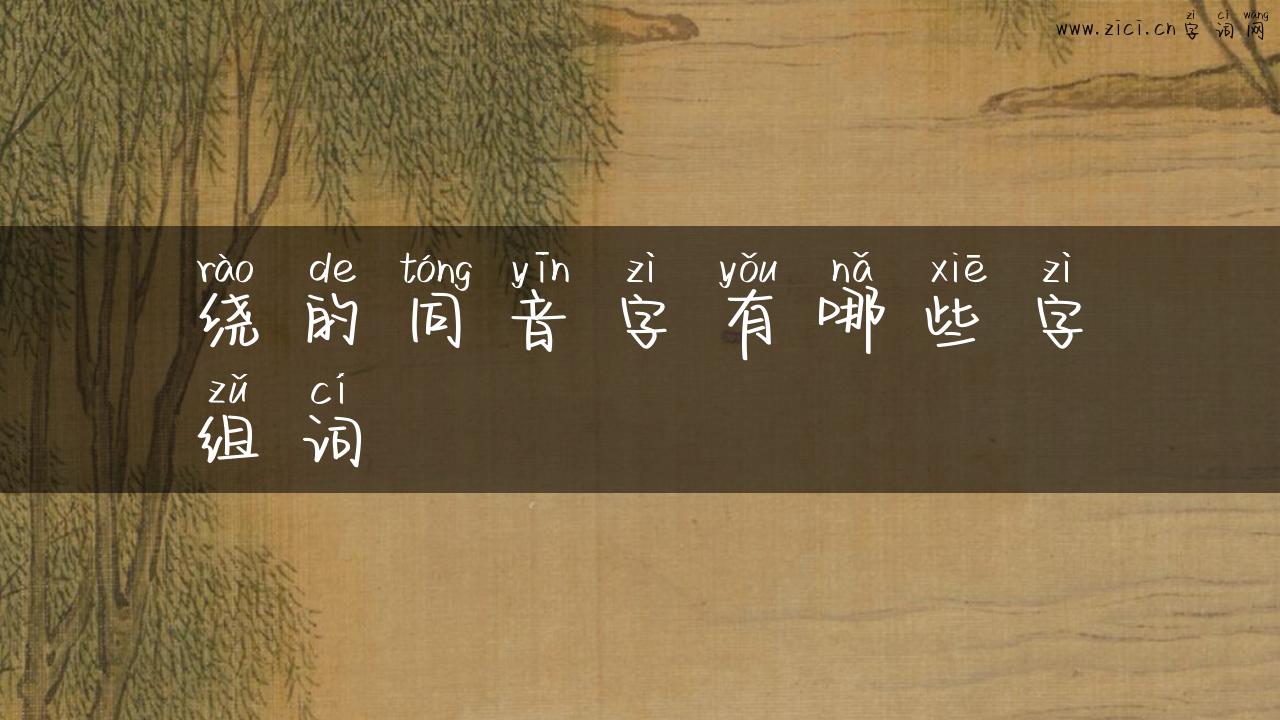 zì cí wǎng
www.zici.cn 字词网
rào de tóng yīn zì yǒu nǎ xiē zì
绕的同音字有哪些字
zǔ cí
组词